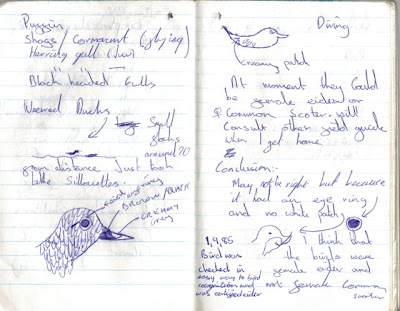 Puffin
Shags / Cormorant (flying)
Herring gull (Juv)
Black headed Gulls
Weered Ducks
large Small
flocks
around 20
from distance Just took
like Silhouettes.
round eye ring
BROWN/BLACK
CREAMY
grey
Diving
creamy patch
At moment they could
be female eider or
♀ Common Scoter. will
Consult other field guide
when I get home
Conclusion:-
May not be right but because
it had an eye ring
and no white patch
I think that
1,9,85
Bird was the birds were
checked in female eider and
easy way to bird
recognition and not female Common
was certified eider Scoter